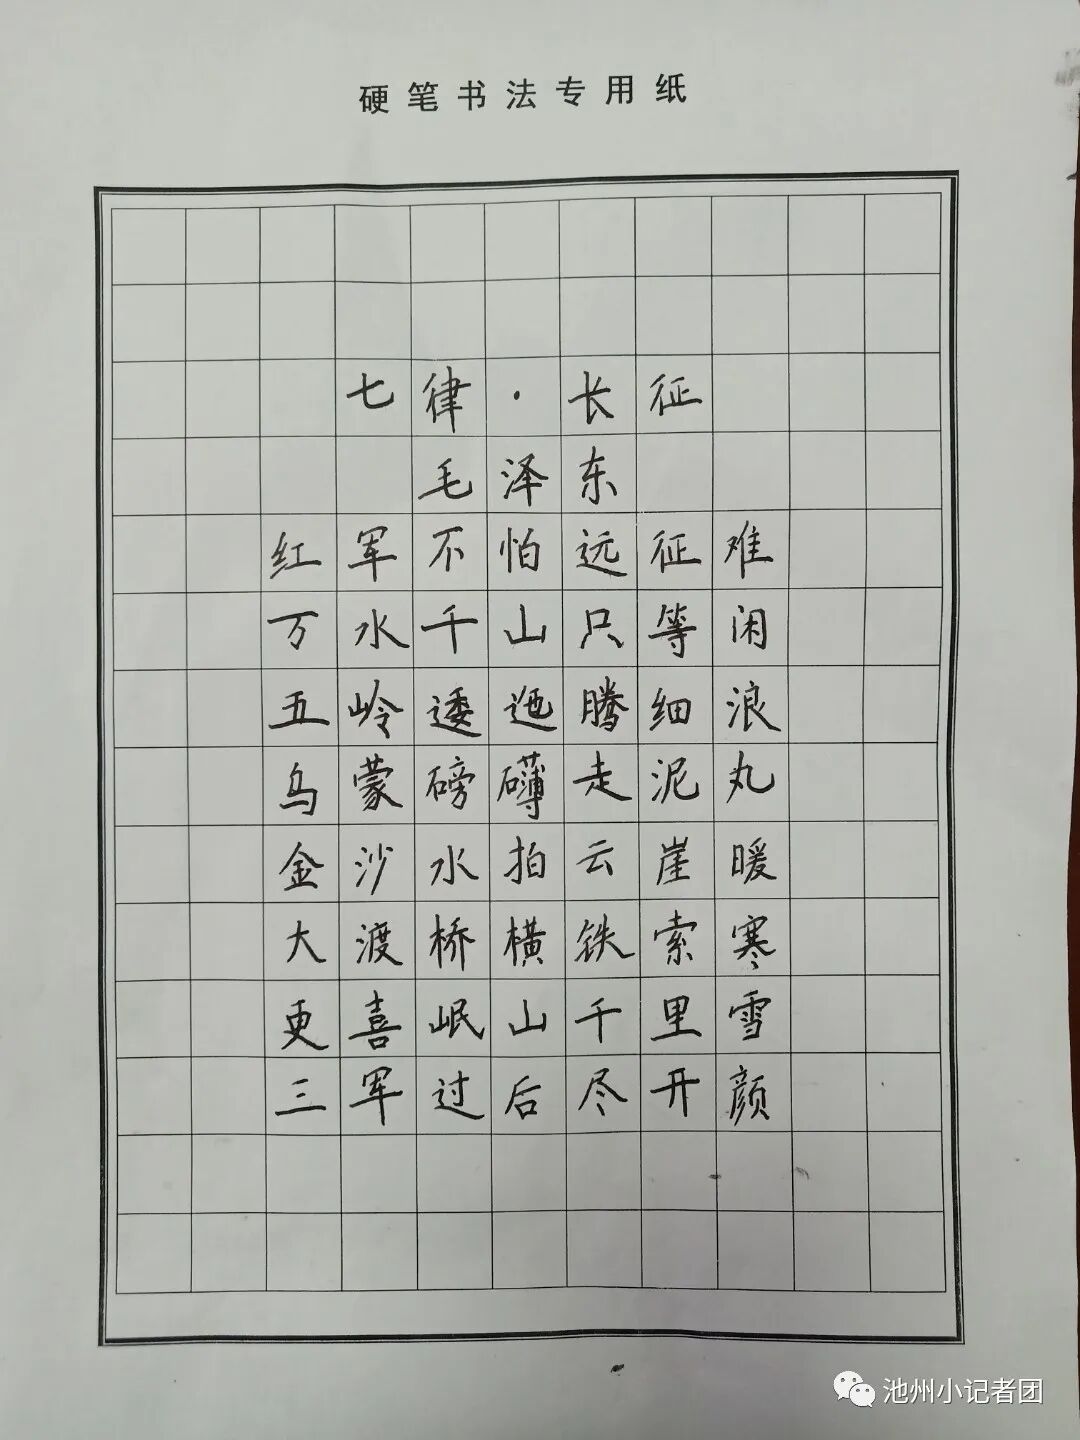 硬笔书法专用纸
七律·长征
毛泽东
红军不怕远征难
万水千山只等闲
五岭逶迤腾细浪
乌蒙磅礴走泥丸
金沙水拍云崖暖
大渡桥横铁索寒
更喜岷山千里雪
三军过后尽开颜
池州小记者团